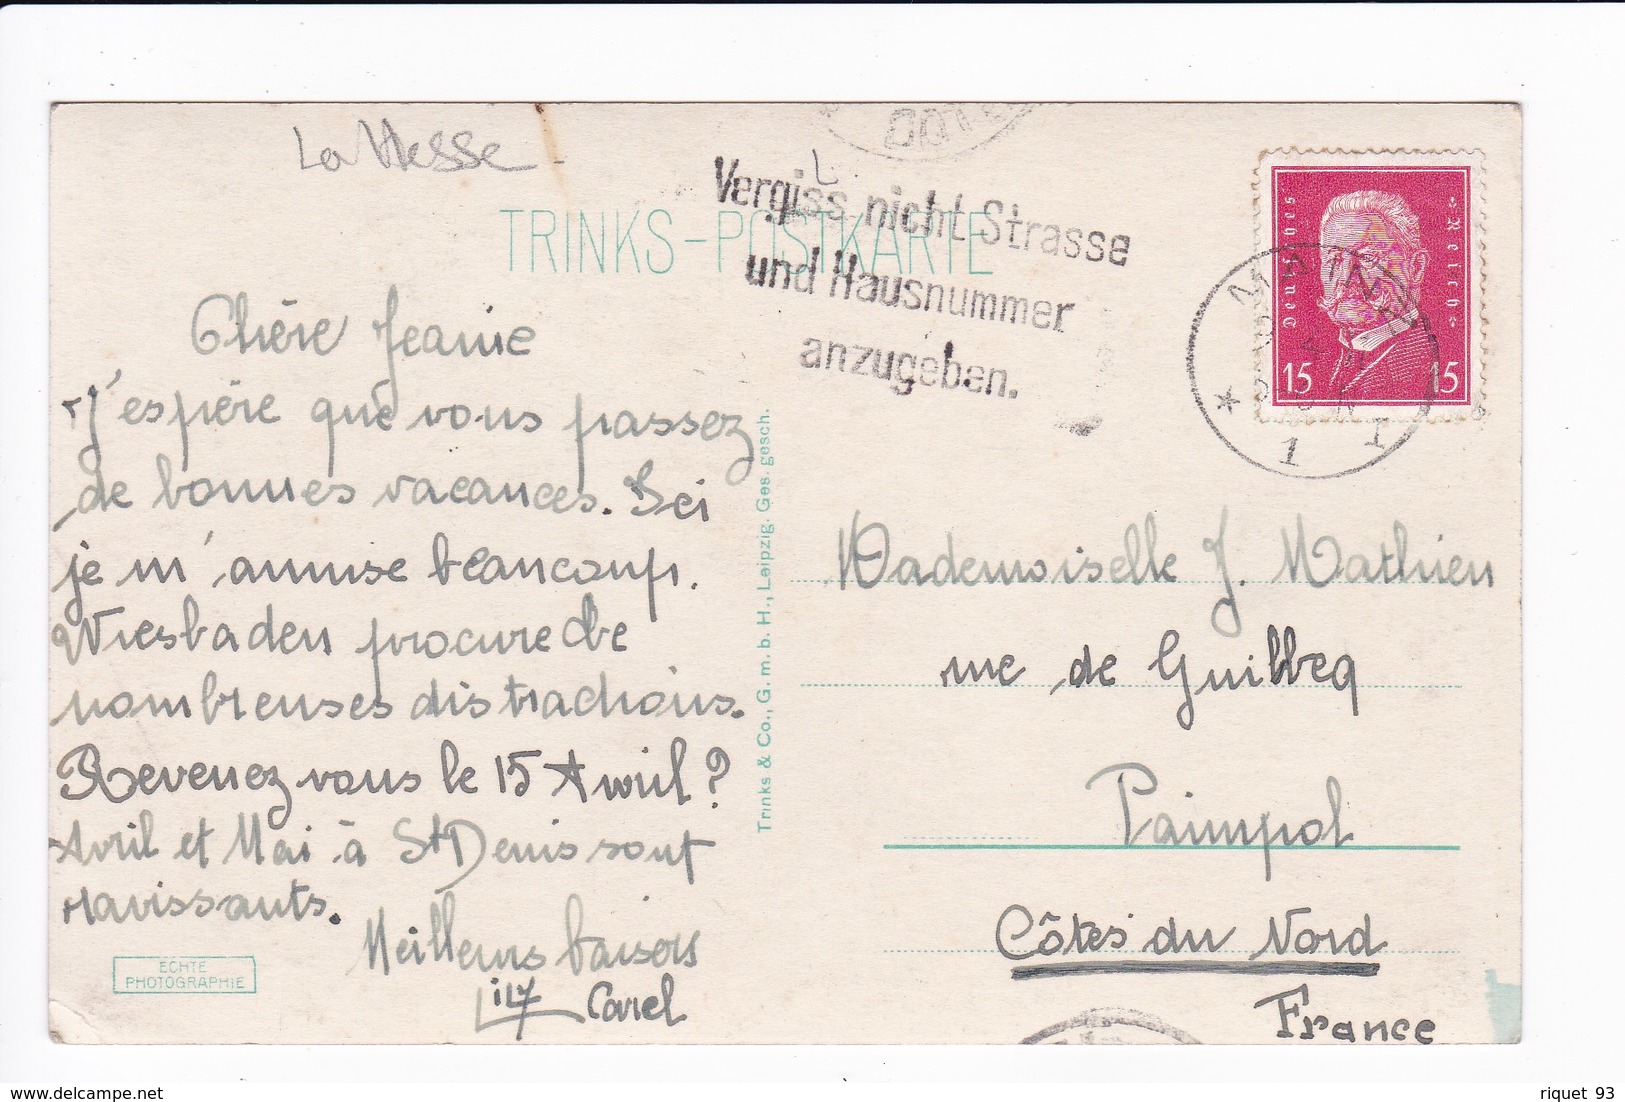 La Hesse
Vergiss nicht Strasse
und Hausnummer
anzugeben.
TRINKS-POSTKARTE
Deutsches Reich
15 15
MAINZ
* 1 I
Chère Jeanie
J'espère que vous passez
de bonnes vacances. Ici
je m'amuse beaucoup.
Wiesbaden procure de
nombreuses distractions.
Revenez vous le 15 Avril?
Avril et Mai à St Denis sont
ravissants.
Meilleurs baisers
Lily Carel
ECHTE
PHOTOGRAPHIE
Trinks & Co., G. m. b. H., Leipzig. Ges. gesch.
Mademoiselle J. Mathieu
rue de Guilbeg
Paimpol
Côtes du Nord
France
riquet 93